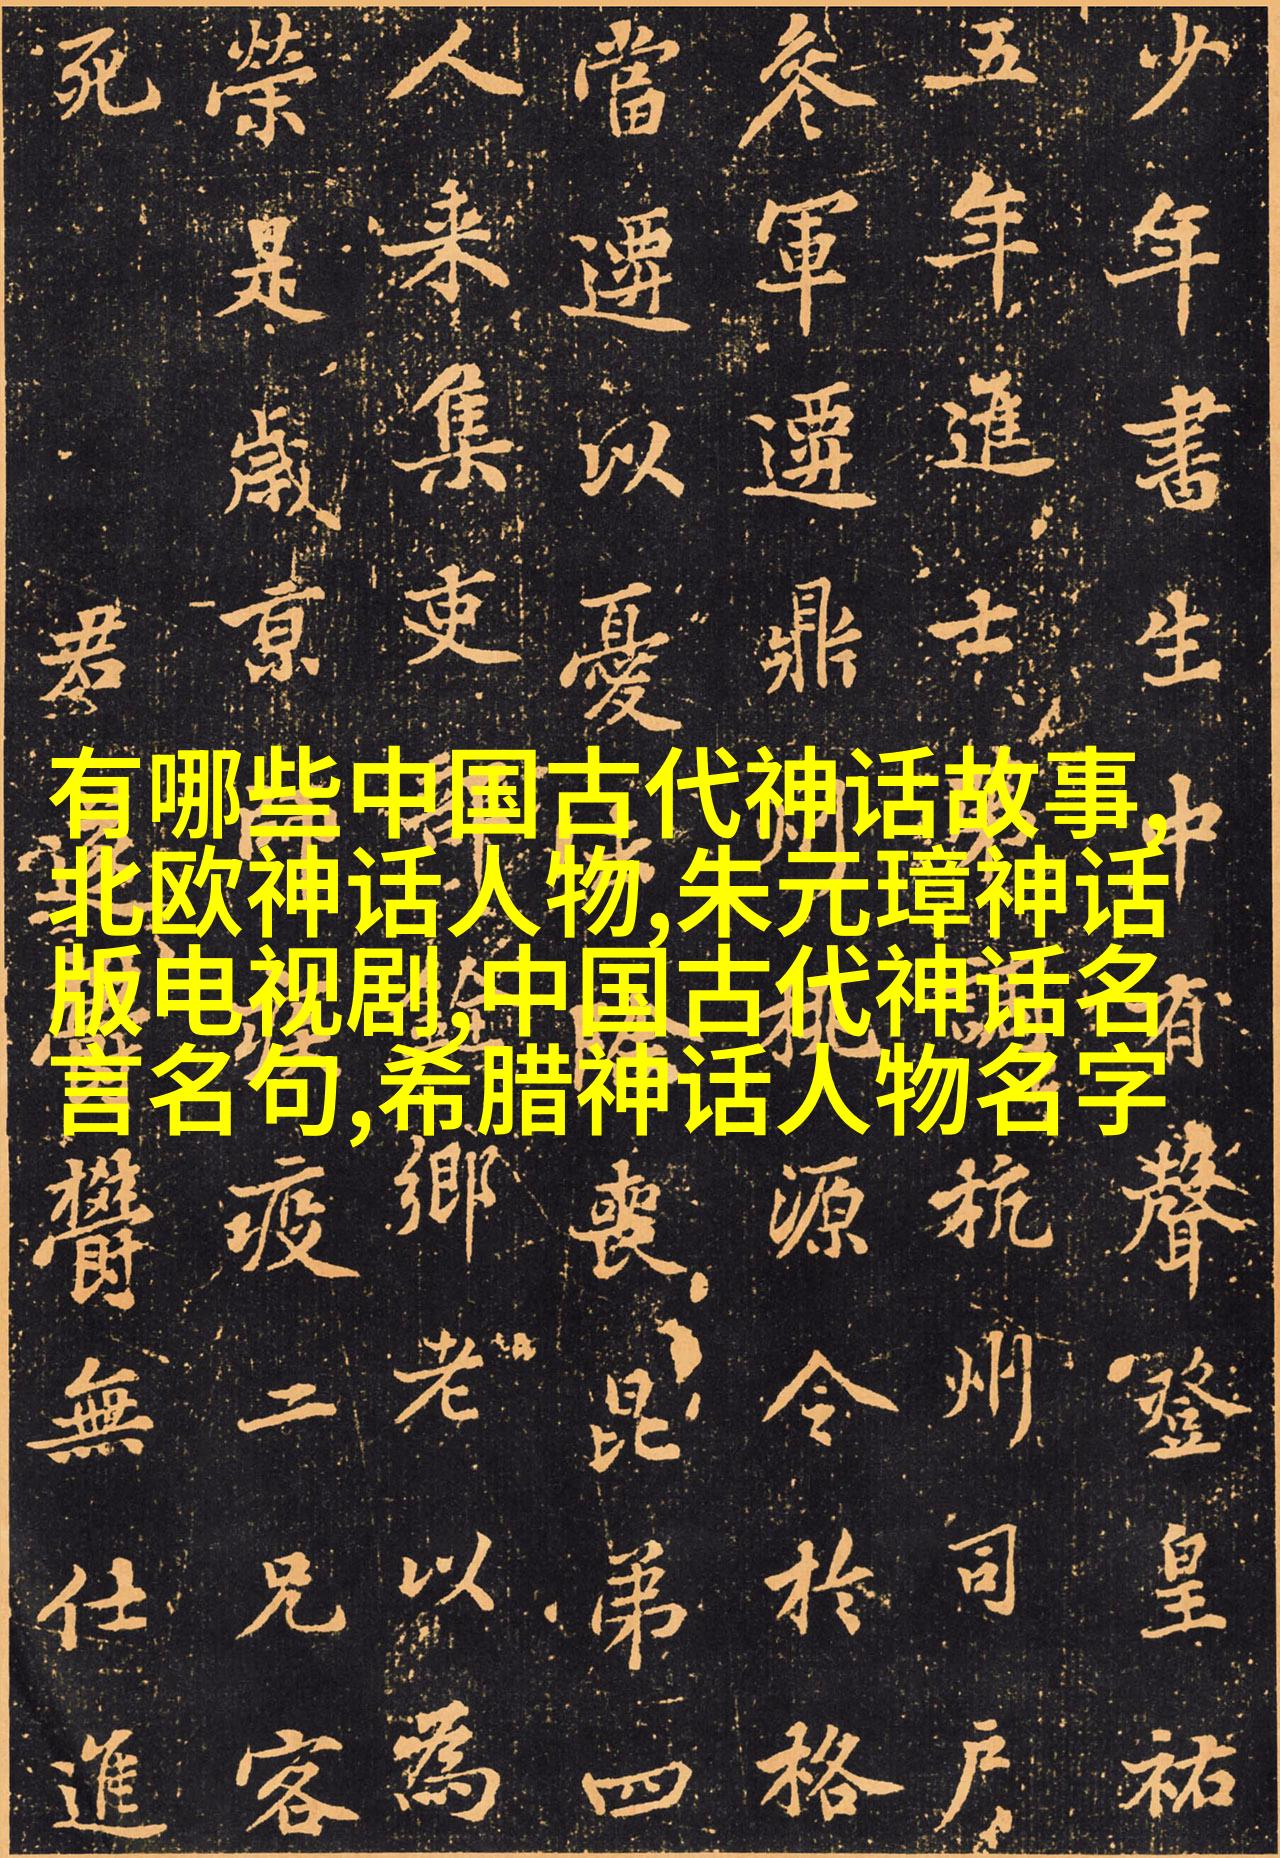 少年書生中有聲登皇祐
五年進士調杭州司户
叅軍遷鼎州桃源令於格
當遷以憂喪昆弟四
人来集吏鄉老以為
榮是歳京疫二兄客
死 君欝無仕進
有哪些中国古代神话故事,
北欧神话人物,朱元璋神话
版电视剧,中国古代神话名
言名句,希腊神话人物名字